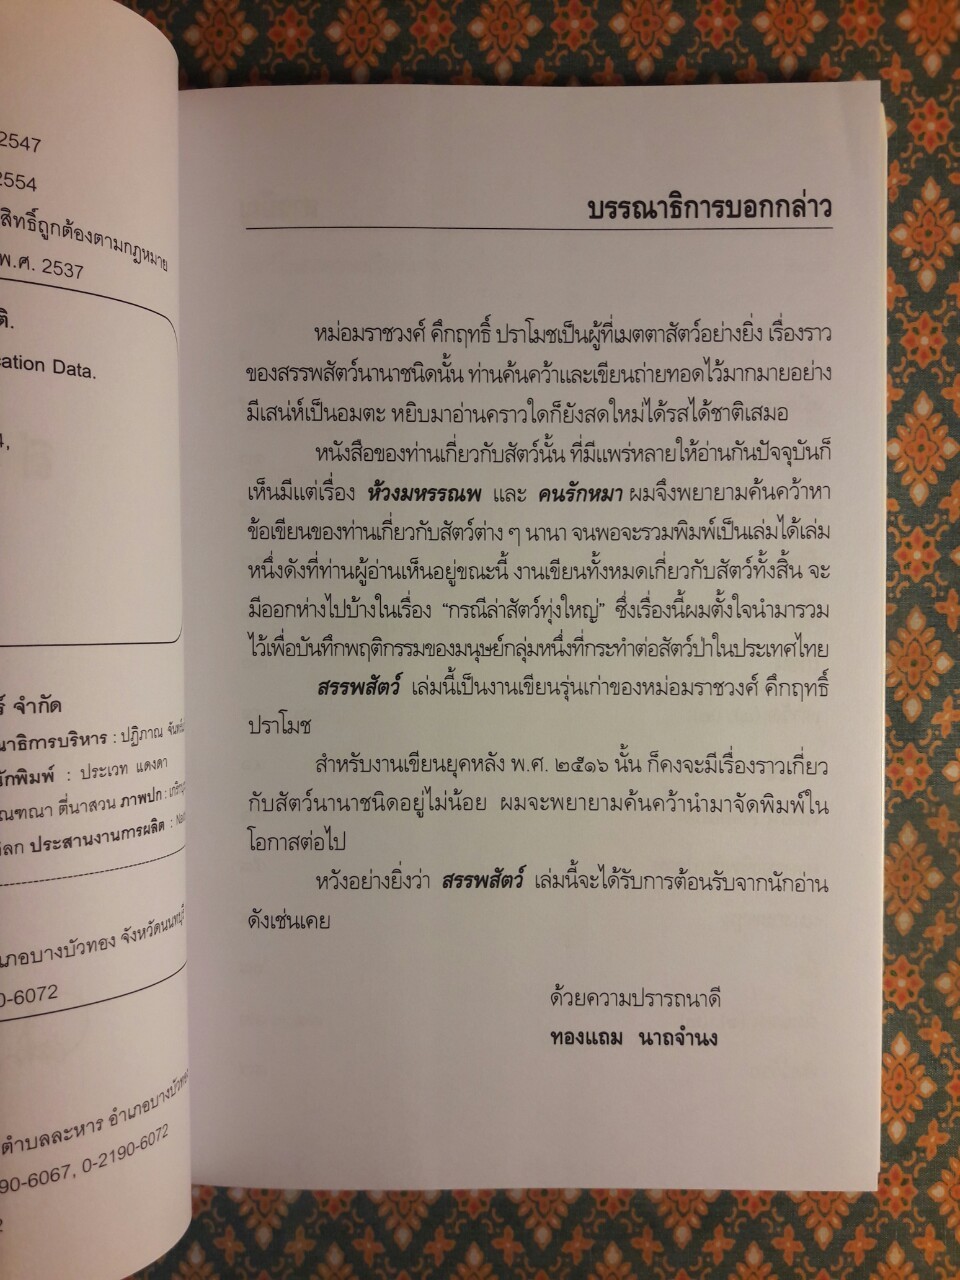 2547
2554
สิทธิ์ถูกต้องตามกฎหมาย
พ.ศ. 2537
ติ.
cation Data.
4,
ร์ จำกัด
นาธิการบริหาร : ปฏิภาณ
นักพิมพ์ : ประเวท แดงดา
ณฑณา ตี่นาสวน ภาพปก :
ลก ประสานงานการผลิต :
เภอบางบัวทอง จังหวัดนนทบุรี
0-6072
ตำบลละหาร อำเภอบางบัวทอง
90-6067, 0-2190-6072
2
บรรณาธิการบอกกล่าว
หม่อมราชวงศ์ คึกฤทธิ์ ปราโมชเป็นผู้ที่เมตตาสัตว์อย่างยิ่ง เรื่องราว
ของสรรพสัตว์นานาชนิดนั้น ท่านค้นคว้าและเขียนถ่ายทอดไว้มากมายอย่าง
มีเสน่ห์เป็นอมตะ หยิบมาอ่านคราวใดก็ยังสดใหม่ได้รสได้ชาติเสมอ
หนังสือของท่านเกี่ยวกับสัตว์นั้น ที่มีแพร่หลายให้อ่านกันปัจจุบันก็
เห็นมีแต่เรื่อง ห้วงมหรรณพ และ คนรักหมา ผมจึงพยายามค้นคว้าหา
ข้อเขียนของท่านเกี่ยวกับสัตว์ต่าง ๆ นานา จนพอจะรวมพิมพ์เป็นเล่มได้เล่ม
หนึ่งดังที่ท่านผู้อ่านเห็นอยู่ขณะนี้ งานเขียนทั้งหมดเกี่ยวกับสัตว์ทั้งสิ้น จะ
มีออกห่างไปบ้างในเรื่อง “กรณีล่าสัตว์ทุ่งใหญ่” ซึ่งเรื่องนี้ผมตั้งใจนำมารวม
ไว้เพื่อบันทึกพฤติกรรมของมนุษย์กลุ่มหนึ่งที่กระทำต่อสัตว์ป่าในประเทศไทย
สรรพสัตว์ เล่มนี้เป็นงานเขียนรุ่นเก่าของหม่อมราชวงศ์ คึกฤทธิ์
ปราโมช
สำหรับงานเขียนยุคหลัง พ.ศ. ๒๕๑๖ นั้น ก็คงจะมีเรื่องราวเกี่ยว
กับสัตว์นานาชนิดอยู่ไม่น้อย ผมจะพยายามค้นคว้านำมาจัดพิมพ์ใน
โอกาสต่อไป
หวังอย่างยิ่งว่า สรรพสัตว์ เล่มนี้จะได้รับการต้อนรับจากนักอ่าน
ดังเช่นเคย
ด้วยความปรารถนาดี
ทองแถม นาถจำนง